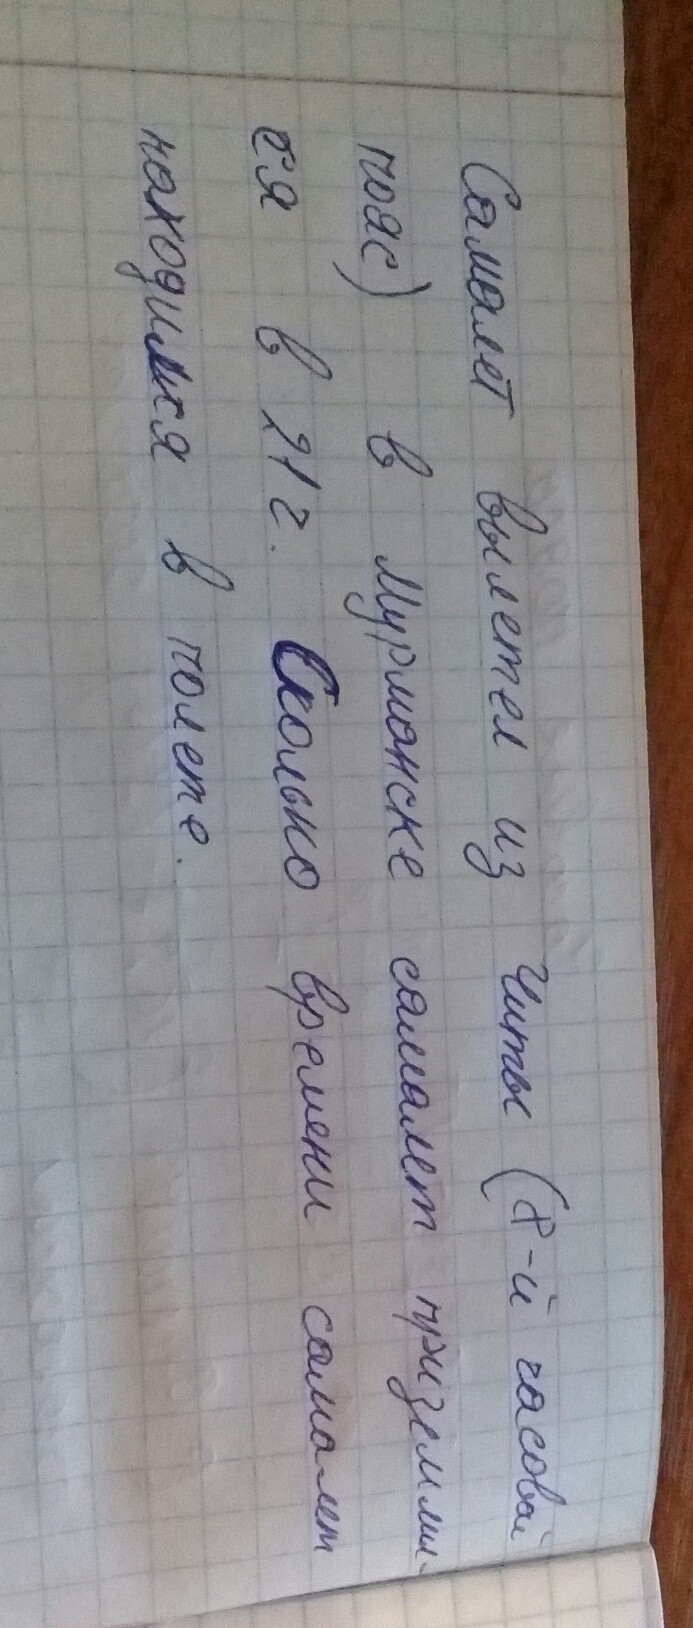 Самолет вылетел из Читы (8-й часовой
пояс) в Мурманске самолет приземлил-
ся в 21 г. Сколько времени самолет
находился в полете.